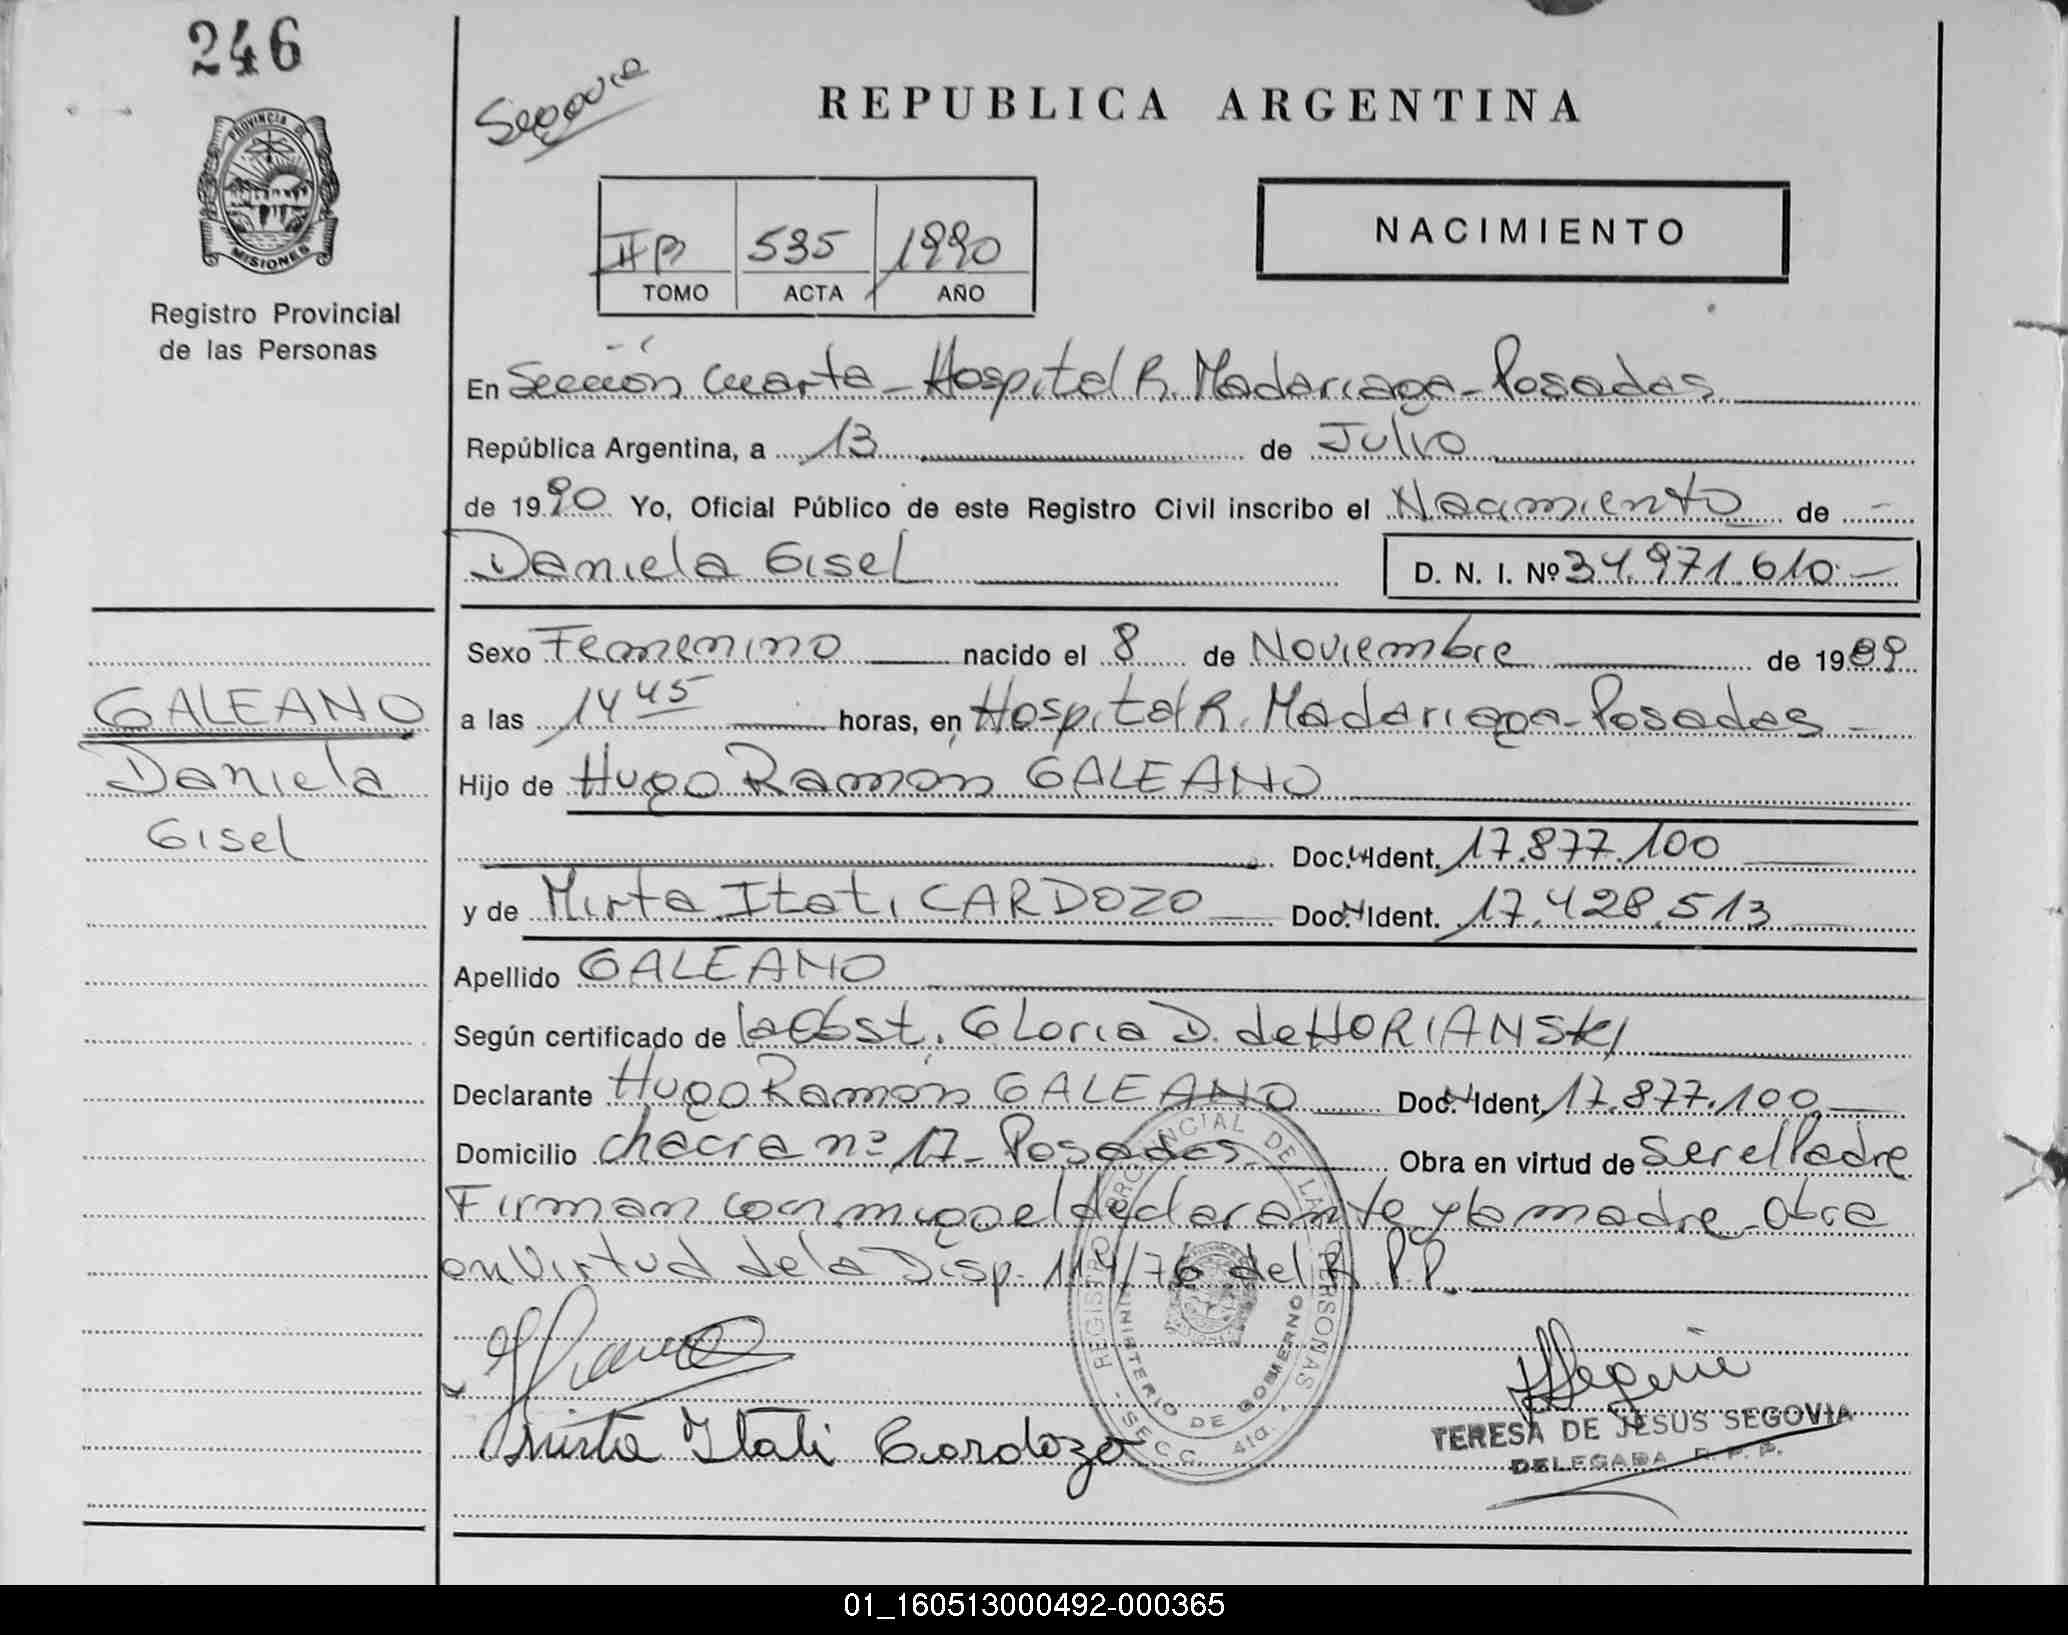 246
PROVINCIA DE
MISIONES
Registro Provincial
de las Personas
GALEANO
Daniela
Gisel
Segovia
REPUBLICA ARGENTINA
IIB 535 1990
TOMO ACTA AÑO
NACIMIENTO
En Sección Cuarta - Hospital R. Madariaga - Posadas
República Argentina, a 13 de Julio
de 1990 Yo, Oficial Público de este Registro Civil inscribo el Nacimiento de
Daniela Gisel D. N. I. Nº 34.971.610.-
Sexo Femenino nacido el 8 de Noviembre de 1989
a las 14 45 horas, en Hospital R. Madariaga - Posadas -
Hijo de Hugo Ramón GALEANO
Doc. Ident. 17.877.100
y de Mirta Itatí CARDOZO Doc. Ident. 17.428.513
Apellido GALEANO
Según certificado de la Obst. Gloria D. de HORIANSKI
Declarante Hugo Ramón GALEANO Doc. Ident. 17.877.100
Domicilio chacra nº 17 - Posadas Obra en virtud de ser el Padre
Firman conmigo el declarante y la madre - Obra
en Virtud de la Disp. 114/76 del R. P. P.
REGISTRO PROVINCIAL DE LAS PERSONAS
MINISTERIO DE GOBIERNO
- SECC. 4ta. -
Mirta Itati Cardozo
TERESA DE JESUS SEGOVIA
DELEGADA R. P. P.
01_160513000492-000365